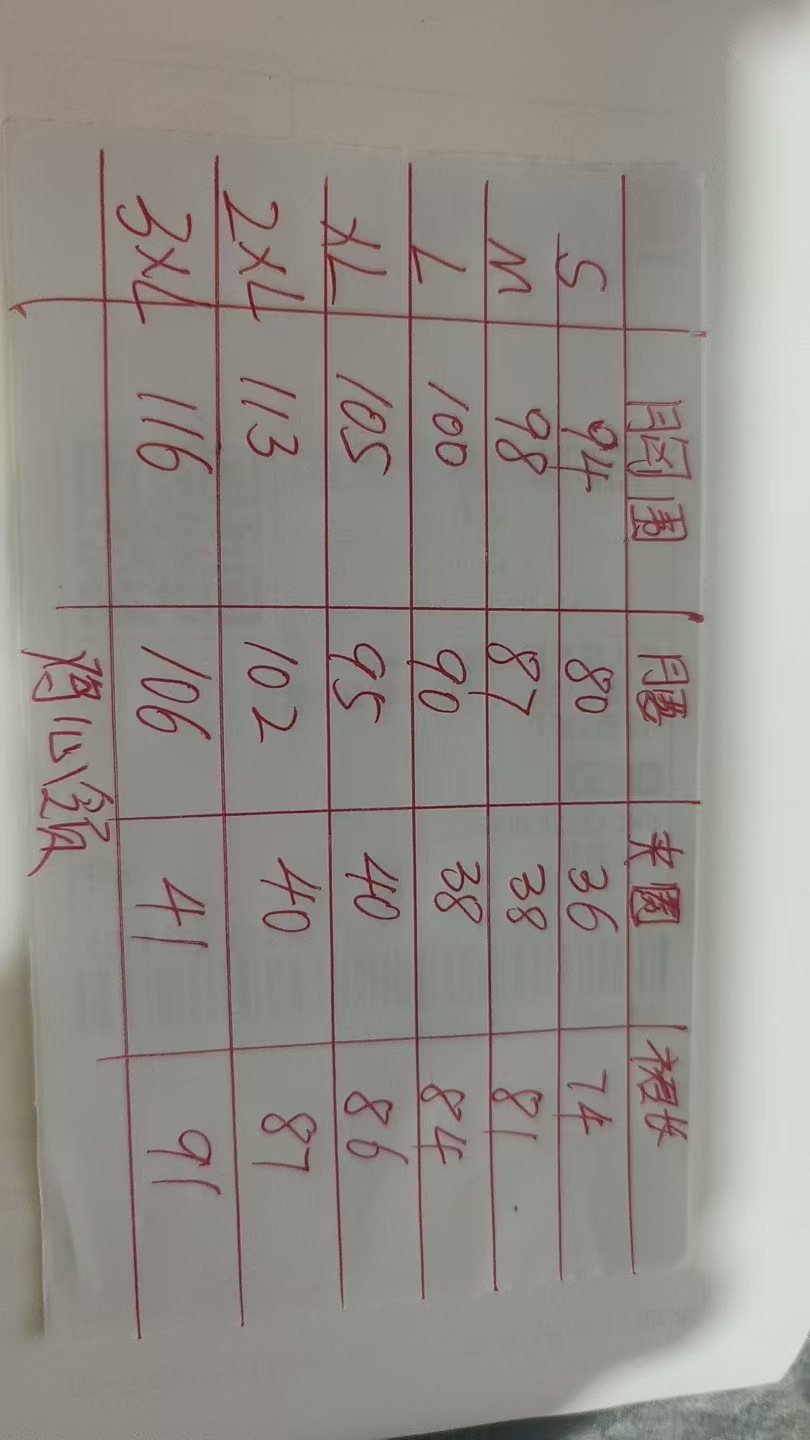 胸围 腰 夹圈 裙长
S 94 80 36 74
M 98 87 38 81
L 100 90 38 84
XL 105 95 40 86
2XL 113 102 40 87
3XL 116 106 41 91
鸡心领